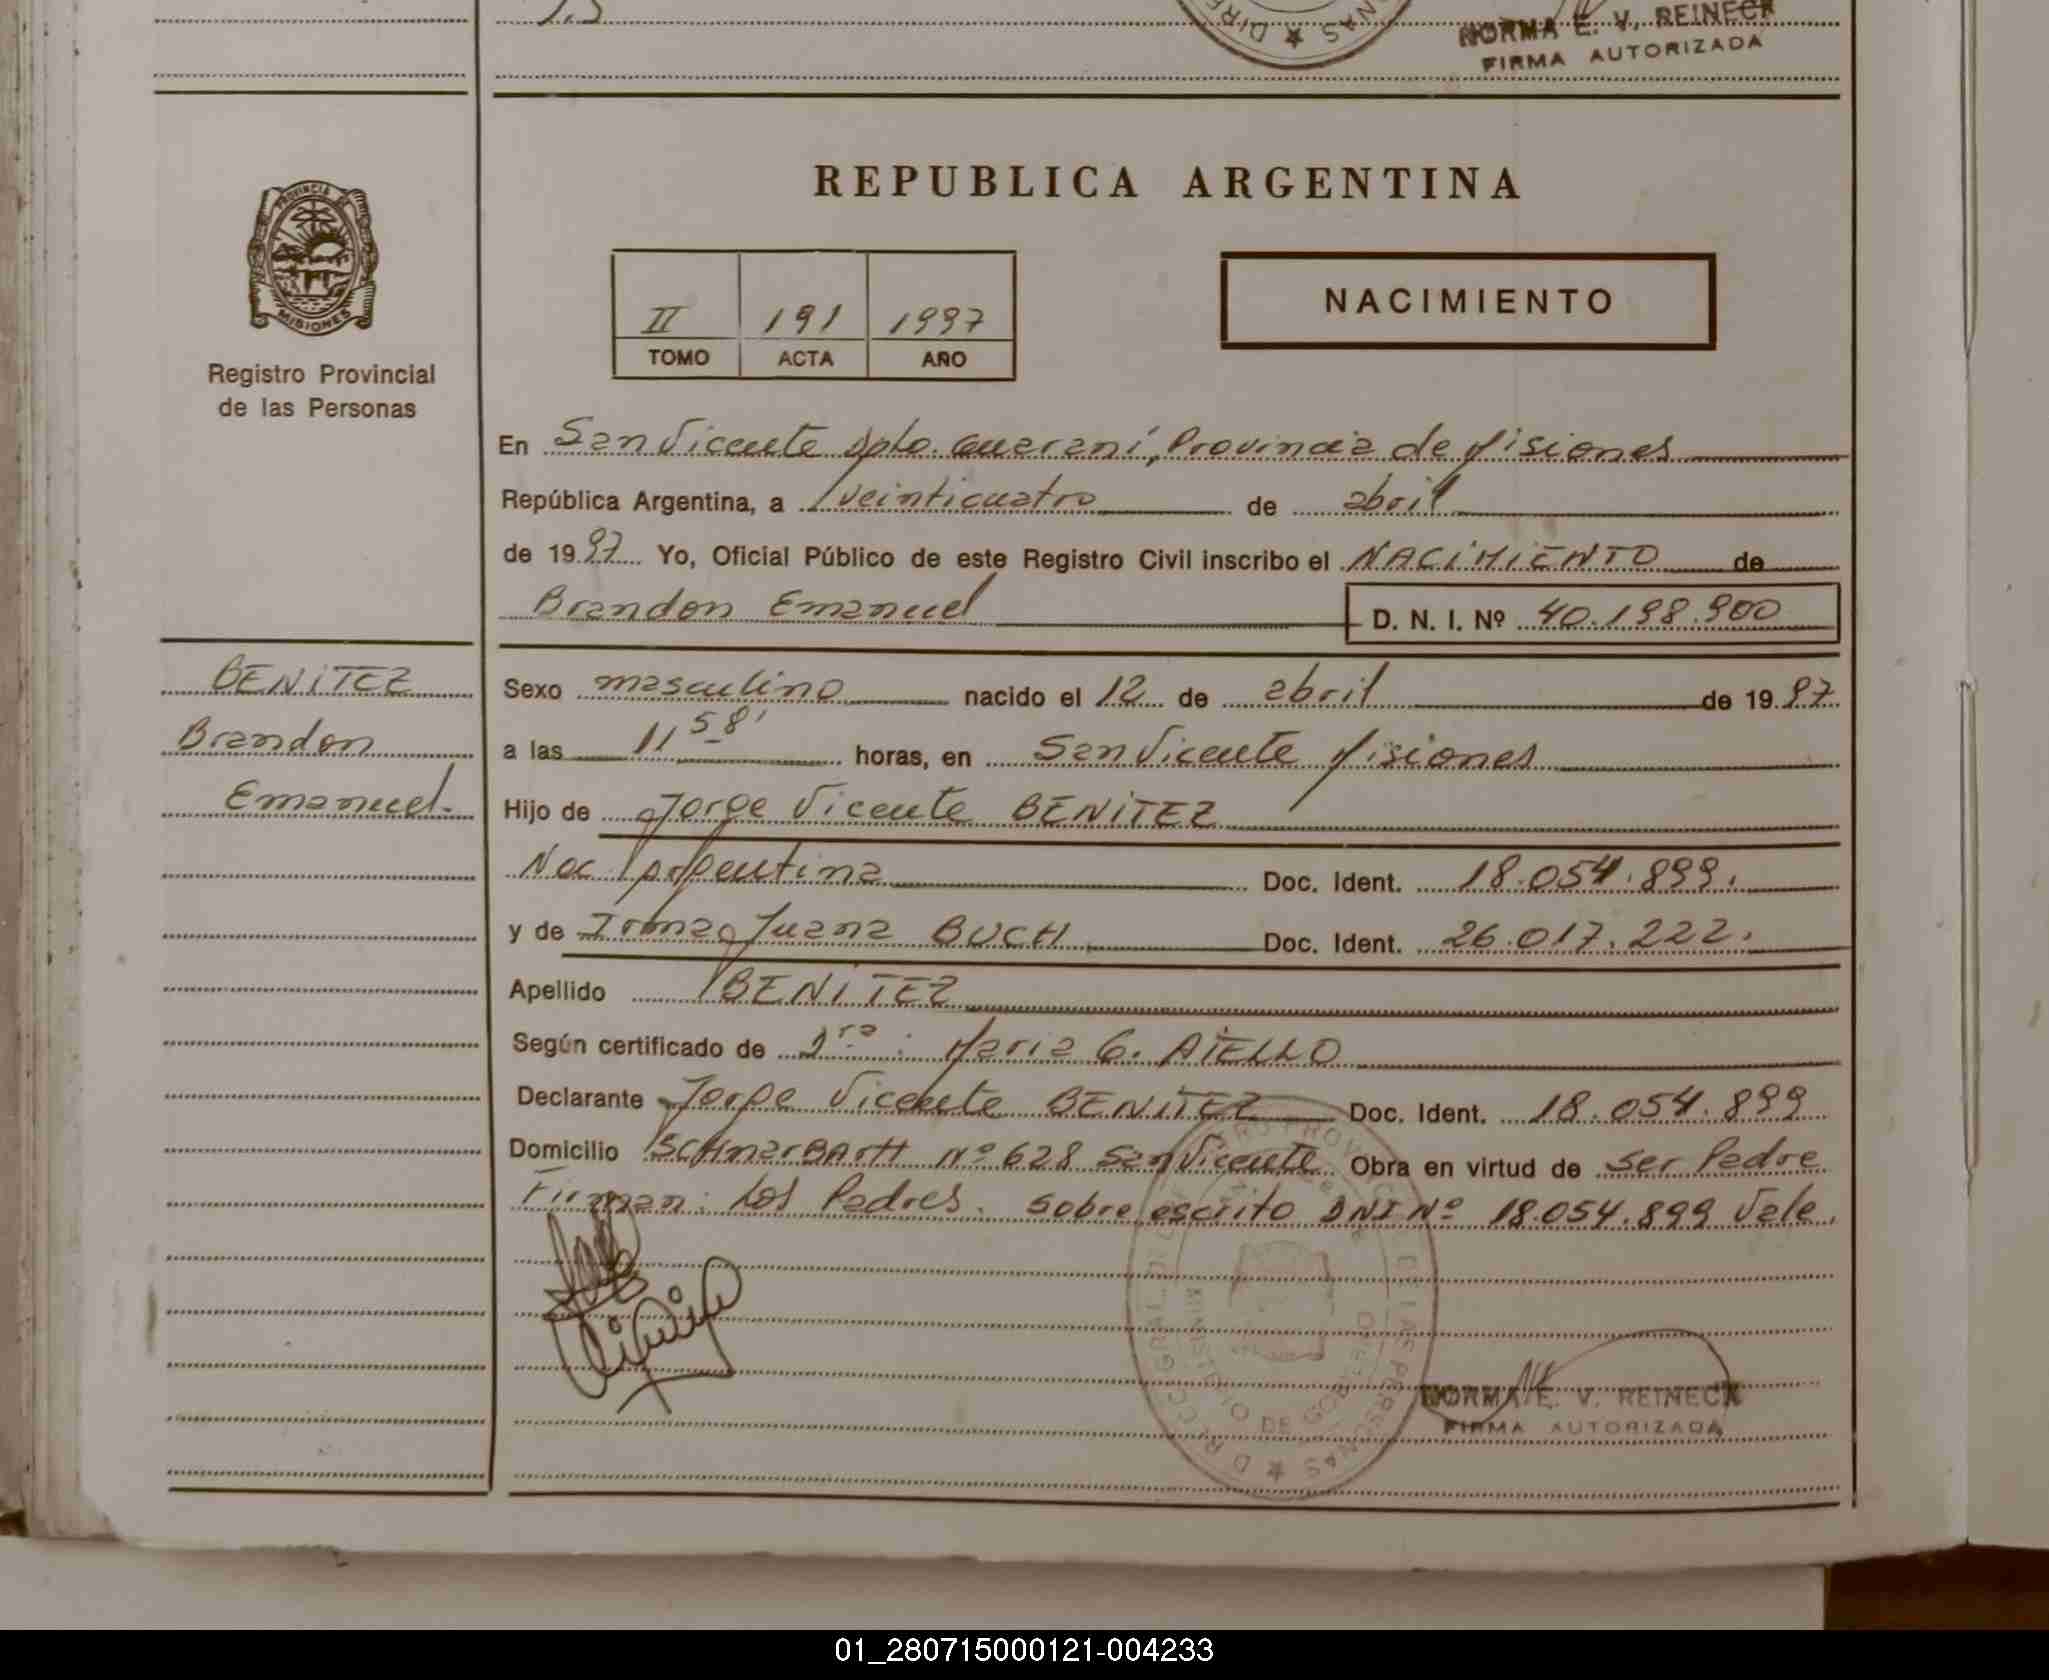 NORMA E. V. REINECK
FIRMA AUTORIZADA
REPUBLICA ARGENTINA
PROVINCIA DE
MISIONES
Registro Provincial
de las Personas
II 191 1997
TOMO ACTA AÑO
NACIMIENTO
En San Vicente Dpto. Guaraní, Provincia de Misiones
República Argentina, a veinticuatro de abril
de 1997 Yo, Oficial Público de este Registro Civil inscribo el NACIMIENTO de
Brandon Emanuel D. N. I. Nº 40.198.900
BENITEZ
Brandon
Emanuel.
Sexo masculino nacido el 12 de abril de 1997
a las 11 58' horas, en San Vicente Misiones
Hijo de Jorge Vicente BENITEZ
Nac Argentina Doc. Ident. 18.054.899.
y de Irma Juana BUCH Doc. Ident. 26.017.222.
Apellido BENITEZ
Según certificado de Dra: Maria G. AIELLO
Declarante Jorge Vicente BENITEZ Doc. Ident. 18.054.899
Domicilio Nº 628 San Vicente Obra en virtud de ser Padre
Firman: Los Padres. Sobre escrito DNI Nº 18.054.899 Vale.
NORMA E. V. REINECK
FIRMA AUTORIZADA
01_280715000121-004233